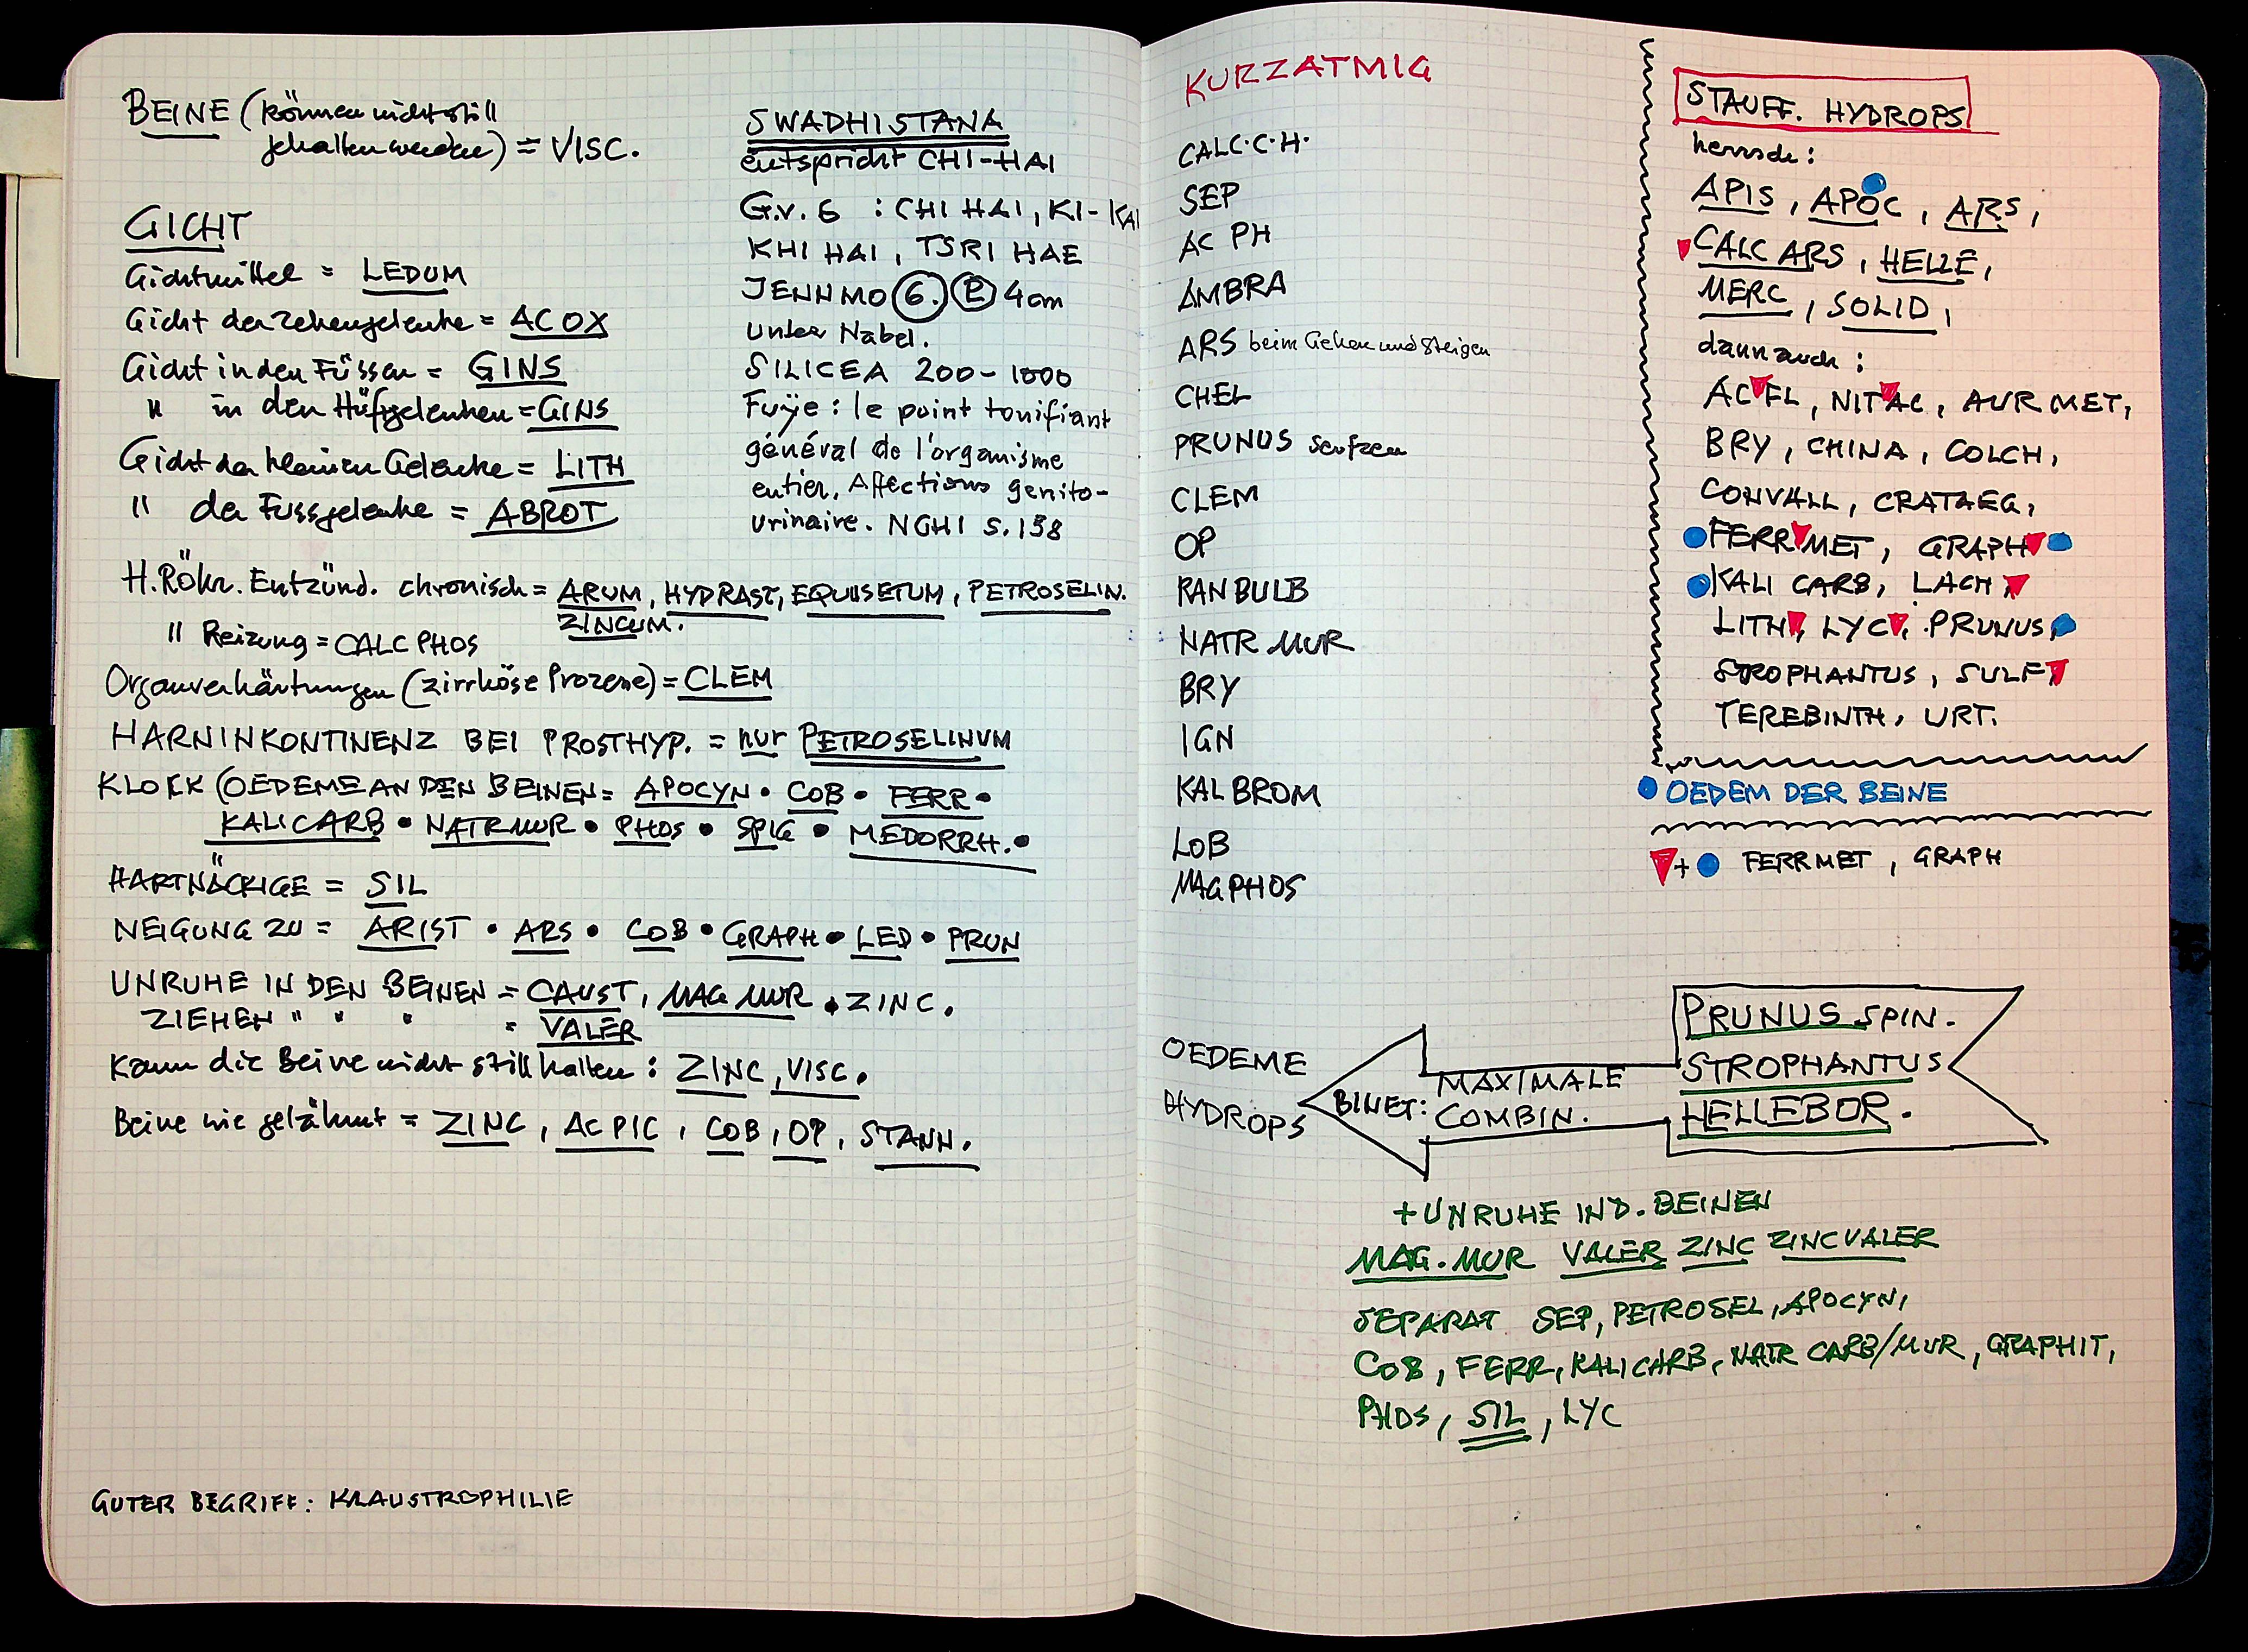 BEINE (können nicht still
gehalten werden) = VISC.
GICHT
Gichtmittel = LEDUM
Gicht der Zehengelenke = AC OX
Gicht in den Füssen = GINS
" in den Hüftgelenken = GINS
Gicht der kleinen Gelenke = LITH
" der Fussgelenke = ABROT
SWADHISTANA
entspricht CHI-HAI
G.v. 6 : CHI HAI, KI-KAI
KHI HAI, TSRI HAE
JENNMO 6. P 4 cm
unter Nabel.
SILICEA 200-1000
Fuÿe: le point tonifiant
général de l'organisme
entier, Affections genito-
urinaire. NGHI S. 138
H.Röhr. Entzünd. chronisch = ARUM, HYDRAST, EQUISETUM, PETROSELIN.
ZINCUM.
" Reizung = CALC PHOS
Organverhärtungen (zirrhöse Prozesse) = CLEM
HARNINKONTINENZ BEI PROSTHYP. = nur PETROSELINUM
KLOCK (OEDEME AN DEN BEINEN = APOCYN • COB • FERR •
KALI CARB • NATR MUR • PHOS • SPIG • MEDORRH. •
HARTNÄCKIGE = SIL
NEIGUNG ZU = ARIST • ARS • COB • GRAPH • LED • PRUN
UNRUHE IN DEN BEINEN = CAUST, MAG MUR • ZINC.
ZIEHEN " " " = VALER
Kann die Beine nicht still halten: ZINC, VISC.
Beine wie gelähmt = ZINC, AC PIC, COB, OP, STANN.
GUTER BEGRIFF: KLAUSTROPHILIE
KURZATMIG
CALC.C.H.
SEP
AC PH
AMBRA
ARS beim Gehen und Steigen
CHEL
PRUNUS Seufzen
CLEM
OP
RAN BULB
NATR MUR
BRY
IGN
KAL BROM
LOB
MAG PHOS
STAUFF. HYDROPS
APIS, APOC, ARS,
CALC ARS, HELLE,
MERC, SOLID,
dann auch:
AC FL, NIT AC, AUR MET,
BRY, CHINA, COLCH,
CONVALL, CRATAEG,
FERR MET, GRAPH
KALI CARB, LACH,
LITH, LYC, PRUNUS,
STROPHANTUS, SULF,
TEREBINTH, URT.
OEDEM DER BEINE
+ FERR MET, GRAPH
OEDEME
HYDROPS
BINET: MAXIMALE
COMBIN.
PRUNUS SPIN.
STROPHANTUS
HELLEBOR.
+ UNRUHE IN D. BEINEN
MAG. MUR VALER ZINC ZINC VALER
SEPARAT SEP, PETROSEL, APOCYN,
COB, FERR, KALI CARB, NATR CARB/MUR, GRAPHIT,
PHOS, SIL, LYC